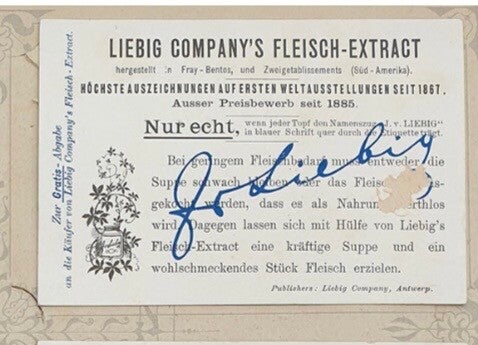 LIEBIG COMPANY'S FLEISCH-EXTRACT
hergestellt in Fray-Bentos, und Zweigetablissements (Süd-Amerika).
HÖCHSTE AUSZEICHNUNGEN AUF ERSTEN WELTAUSSTELLUNGEN SEIT 1867.
Ausser Preisbewerb seit 1885.
Nur echt, wenn jeder Topf den Namenszug „J. v. LIEBIG"
in blauer Schrift quer durch die Etiquette trägt.
Bei geringem Fleischbedarf muss entweder die
Suppe schwach bleiben oder das Fleisch
gekocht werden, dass es als Nahrung
wird. Dagegen lassen sich mit Hülfe von Liebig's
Fleisch-Extract eine kräftige Suppe und ein
wohlschmeckendes Stück Fleisch erzielen.
Publishers: Liebig Company, Antwerp.
Zur Gratis-Abgabe
an die Käufer von Liebig Company's Fleisch-Extract.
J v Liebig